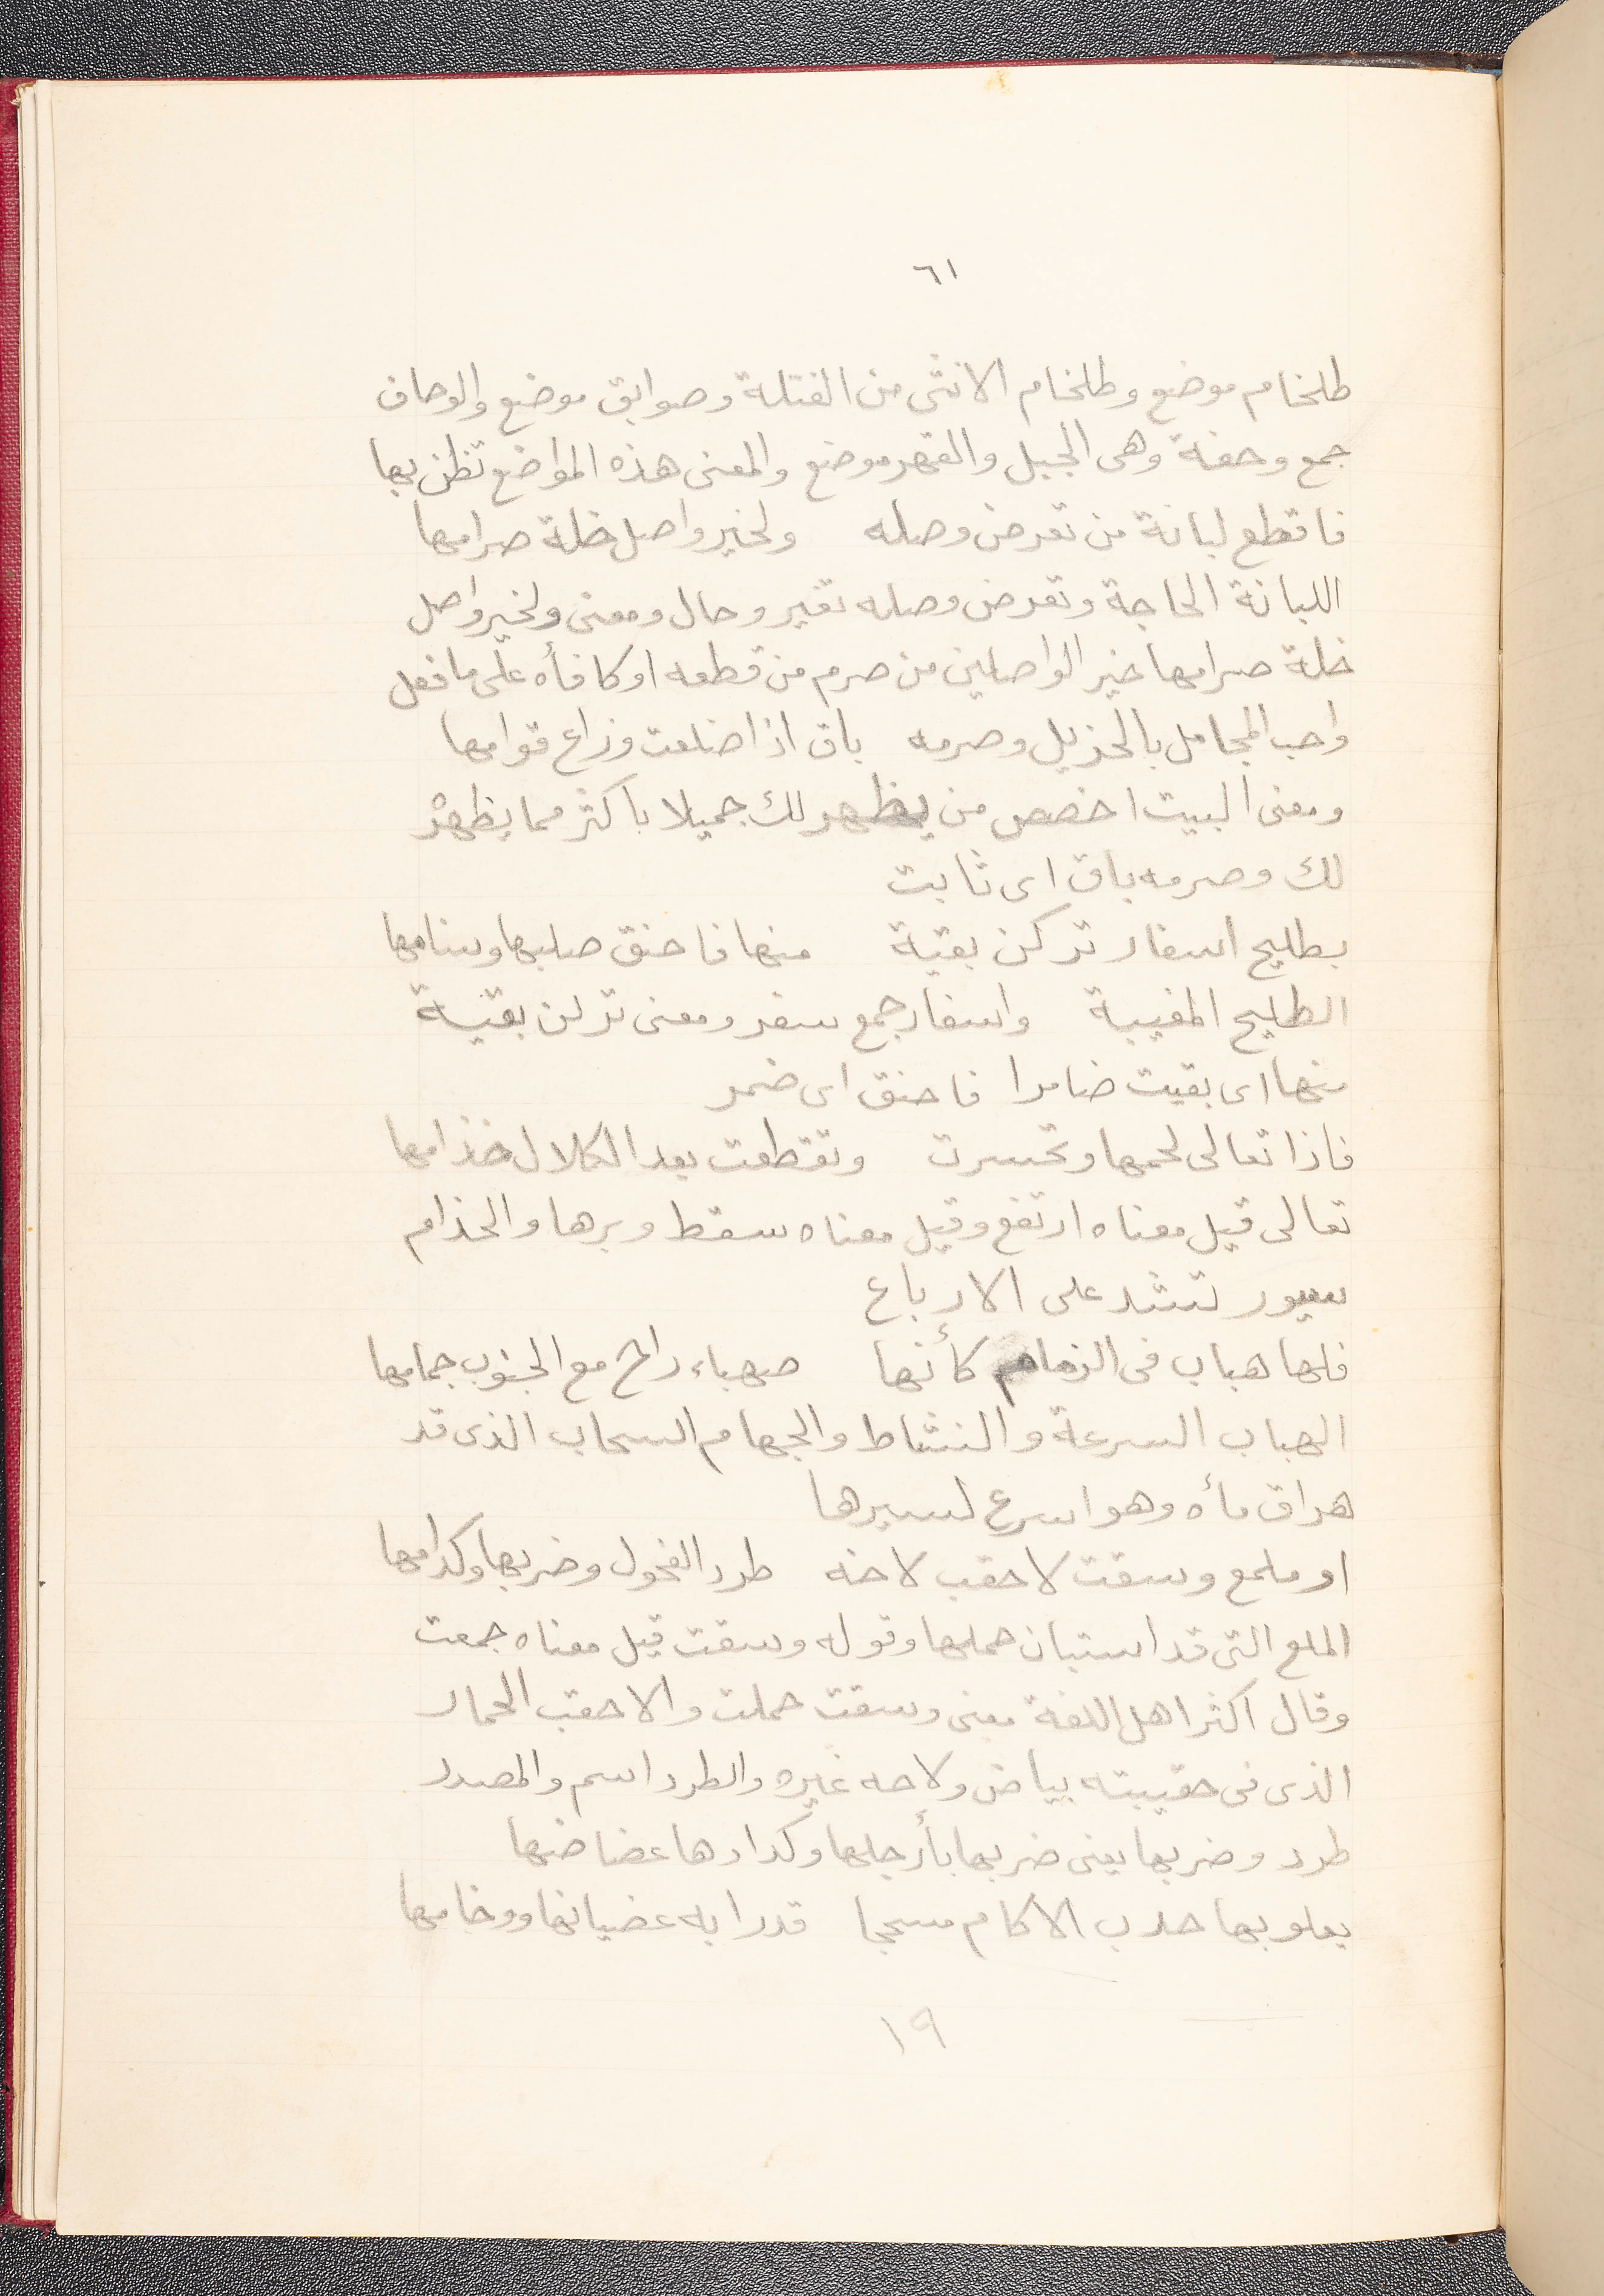 ٦١
طلخام موضع وطلخام الانثى من الفتلة وصوايق موضع والوحاف
جمع وحفة وهى الجبل والقهر موضع والمعنى هذه المواضع تظن بها
فاقطع لبانة من تعرض وصله ولخير واصل خلة صرامها
اللبانة الحاجة وتعرض وصله تغير وحال ومعنى ولخير واصل
خلة صرامها خير الواصلين من صرم من قطعه او كافأه على ما فعل
واحب المجامل بالجزيل وصرمه باق اذا ضلعت وزاغ قوامها
ومعنى البيت اخصص من يظهر لك جميلا باكثر مما يظهر
لك وصرمه باق اى ثابت
بطليح اسفار تركن بقية منها فاحنق صلبها وسنامها
الطليح المغيبة واسفار جمع سفر ومعنى تركن بقية
منها اى بقيت ضامرا فاحنق اى ضمر
فاذا تعالى لحمها وتحسرت وتقطعت بعد الكلال خذامها
تعالى قيل معناه ارتفع وقيل معناه سقط وبرها والخذام
سيور تشد على الارباع
فلها هباب فى الزمام كأنها صهباء راح مع الجنوب جمامها
الهباب السرعة والنشاط والجهام السحاب الذى قد
هراق مأه وهو اسرع لسيرها
او ملمع وسقت لاحقب لاحه طرد الفحول وضربها وكدامها
الملع التى قد استبان حملها وقوله وسقت قيل معناه جمعت
وقال اكثر اهل اللغة معنى وسقت حملت والاحقب الحمار
الذى فى حقيبته بياض ولاحه غيره والطرد اسم والمصدر
طرد وضربها يعنى ضربها بأرجلها وكدارها عضاضها
يعلو بها حدب الاكام مسحجا قد رابه عضيانها ووخامها
١٩